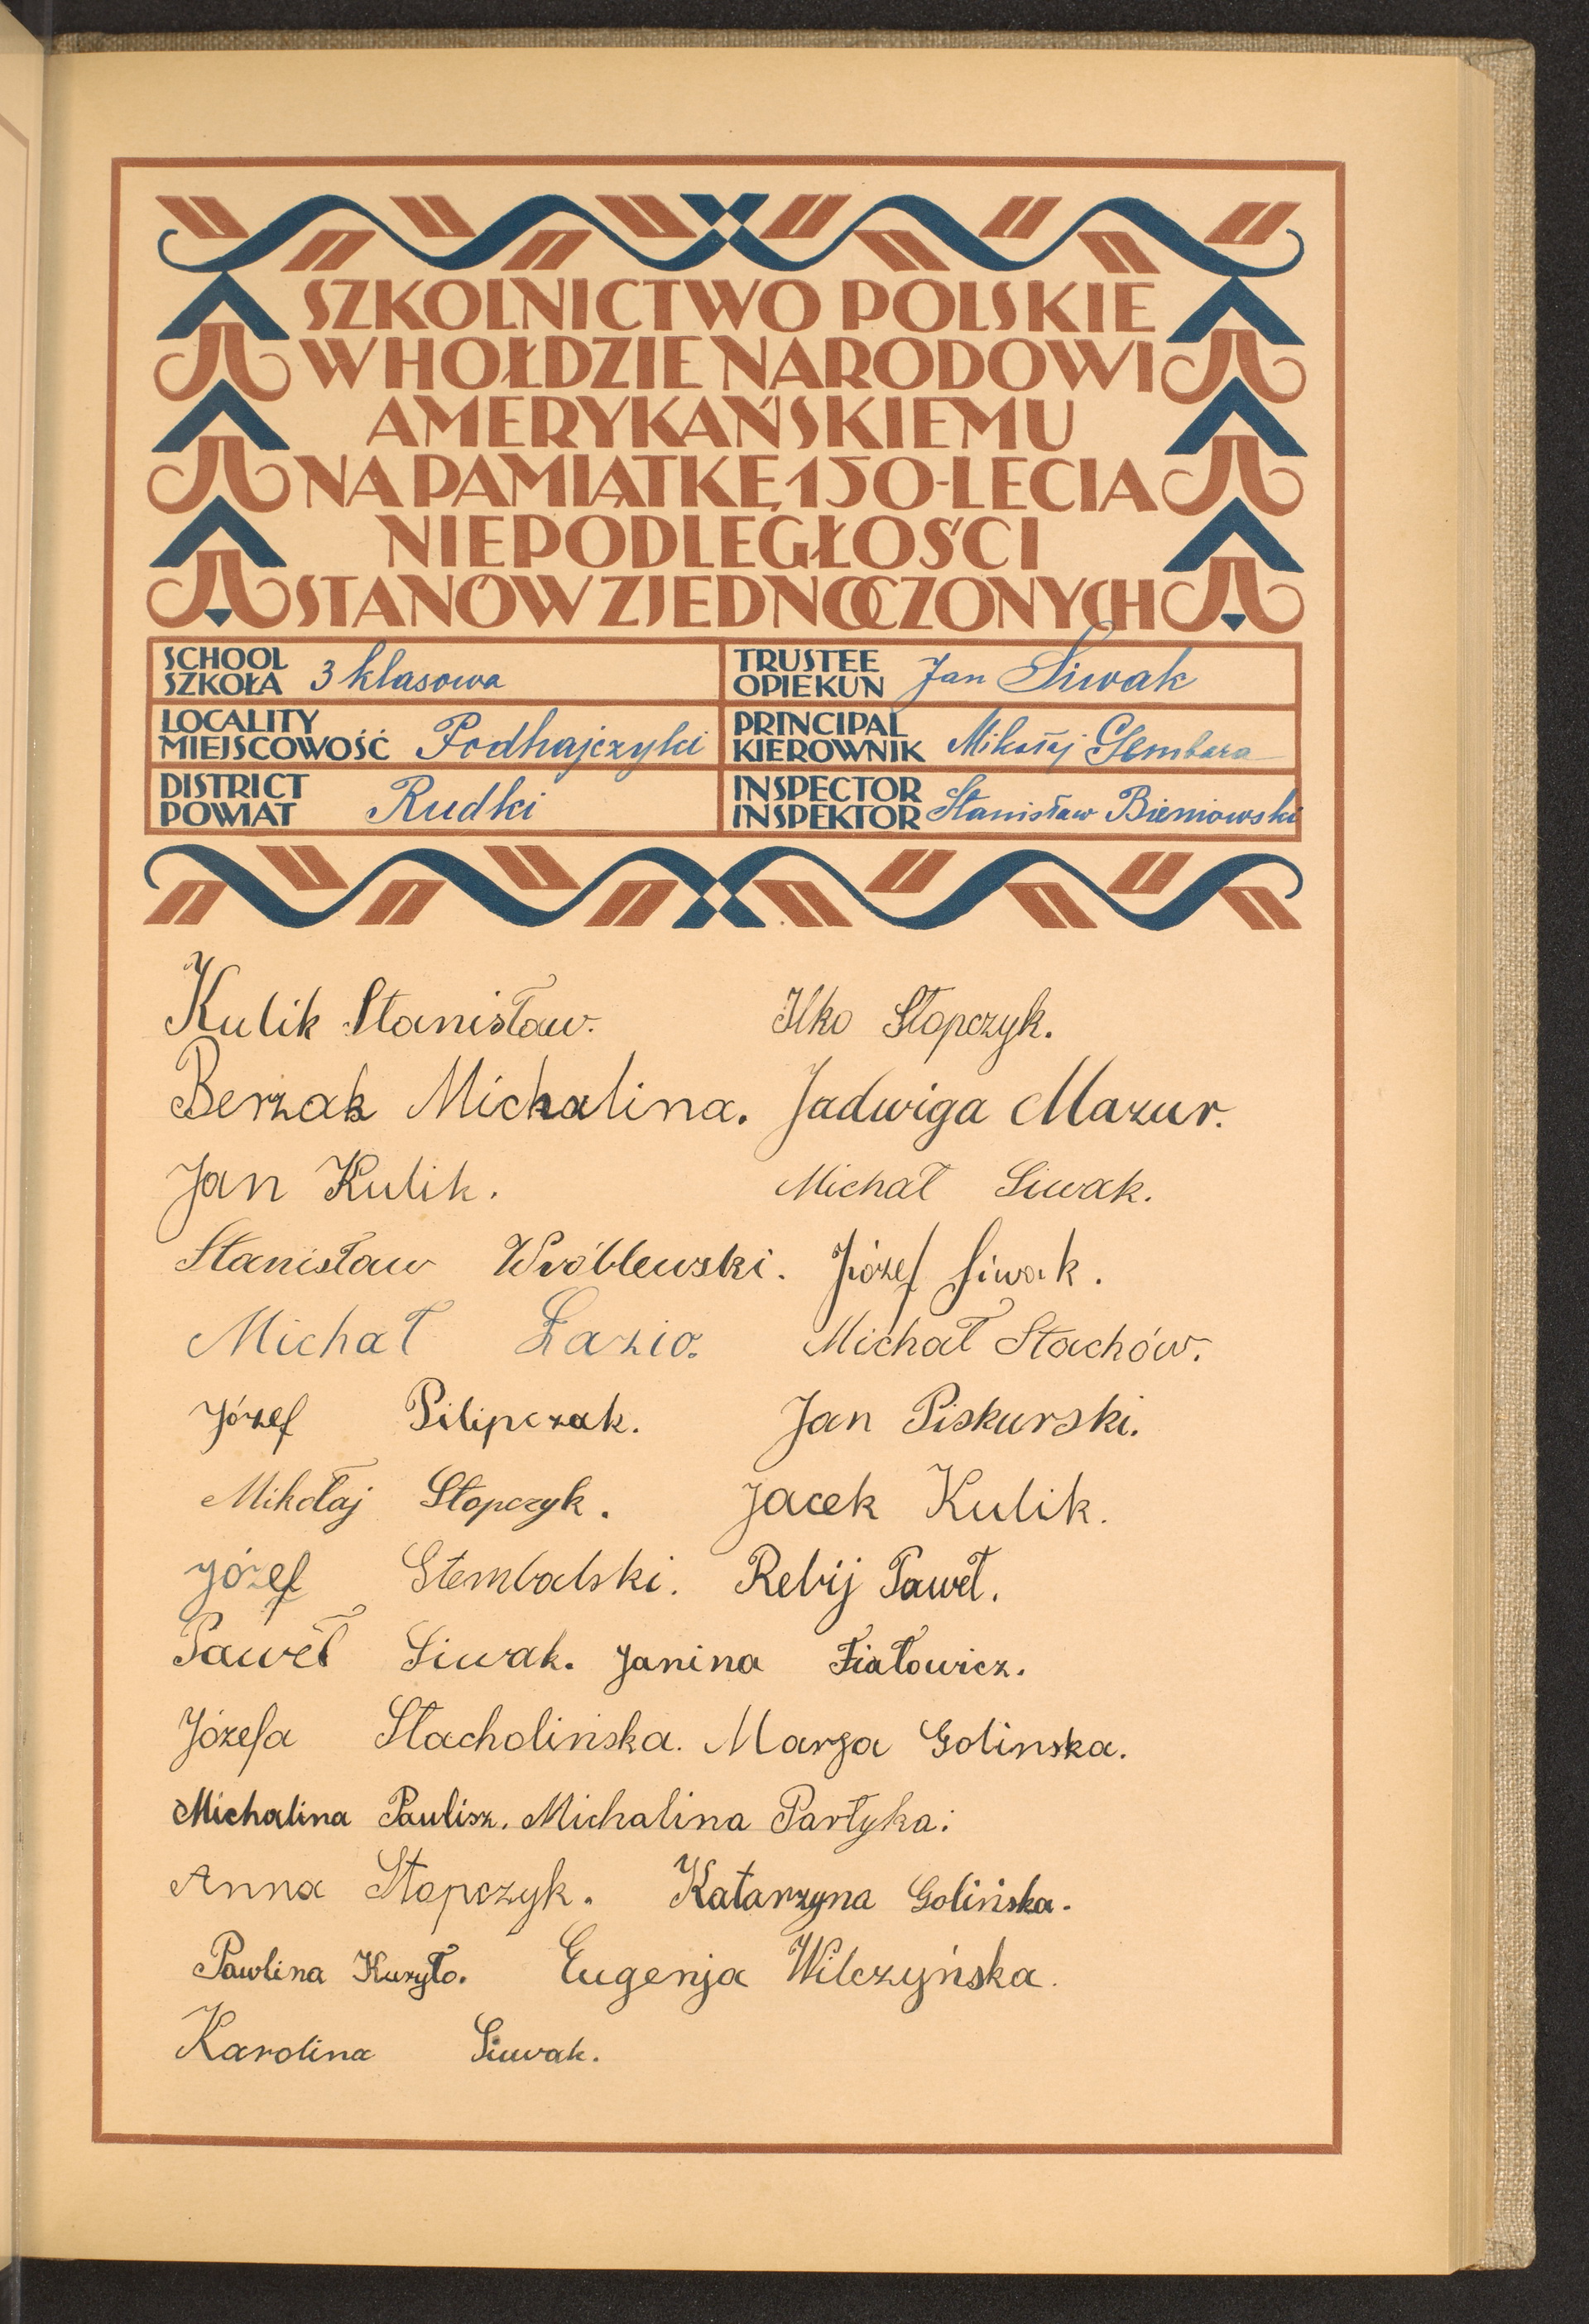 SZKOLNICTWO POLSKIE
W HOŁDZIE NARODOWI
AMERYKAŃSKIEMU
NA PAMIĄTKĘ 150-LECIA
NIEPODLEGŁOŚCI
STANÓW ZJEDNOCZONYCH
SCHOOL
SZKOŁA 3 klasowa
TRUSTEE
OPIEKUN Jan Siwak
LOCALITY
MIEJSCOWOŚĆ Podhajczyki
PRINCIPAL
KIEROWNIK Mikołaj Glembara
DISTRICT
POWIAT Rudki
INSPECTOR
INSPEKTOR Stanisław Bieniowski
Kulik Stanisław. Ilko Stopczyk.
Berzak Michalina. Jadwiga Mazur.
Jan Kulik. Michał Siwak.
Stanisław Wróblewski. Józef Siwak.
Michał Łazio. Michał Stachów.
Józef Pilipczak. Jan Piskurski.
Mikołaj Stopczyk. Jacek Kulik.
Józef Stembalski. Rebij Paweł.
Paweł Siwak. Janina Fiałowicz.
Józefa Stacholińska. Marja Golinska.
Michalina Paulisz. Michalina Partyka.
Anna Stopczyk. Katarzyna Golińska.
Pawlina Kuryło. Eugenja Wilczyńska.
Karolina Siwak.